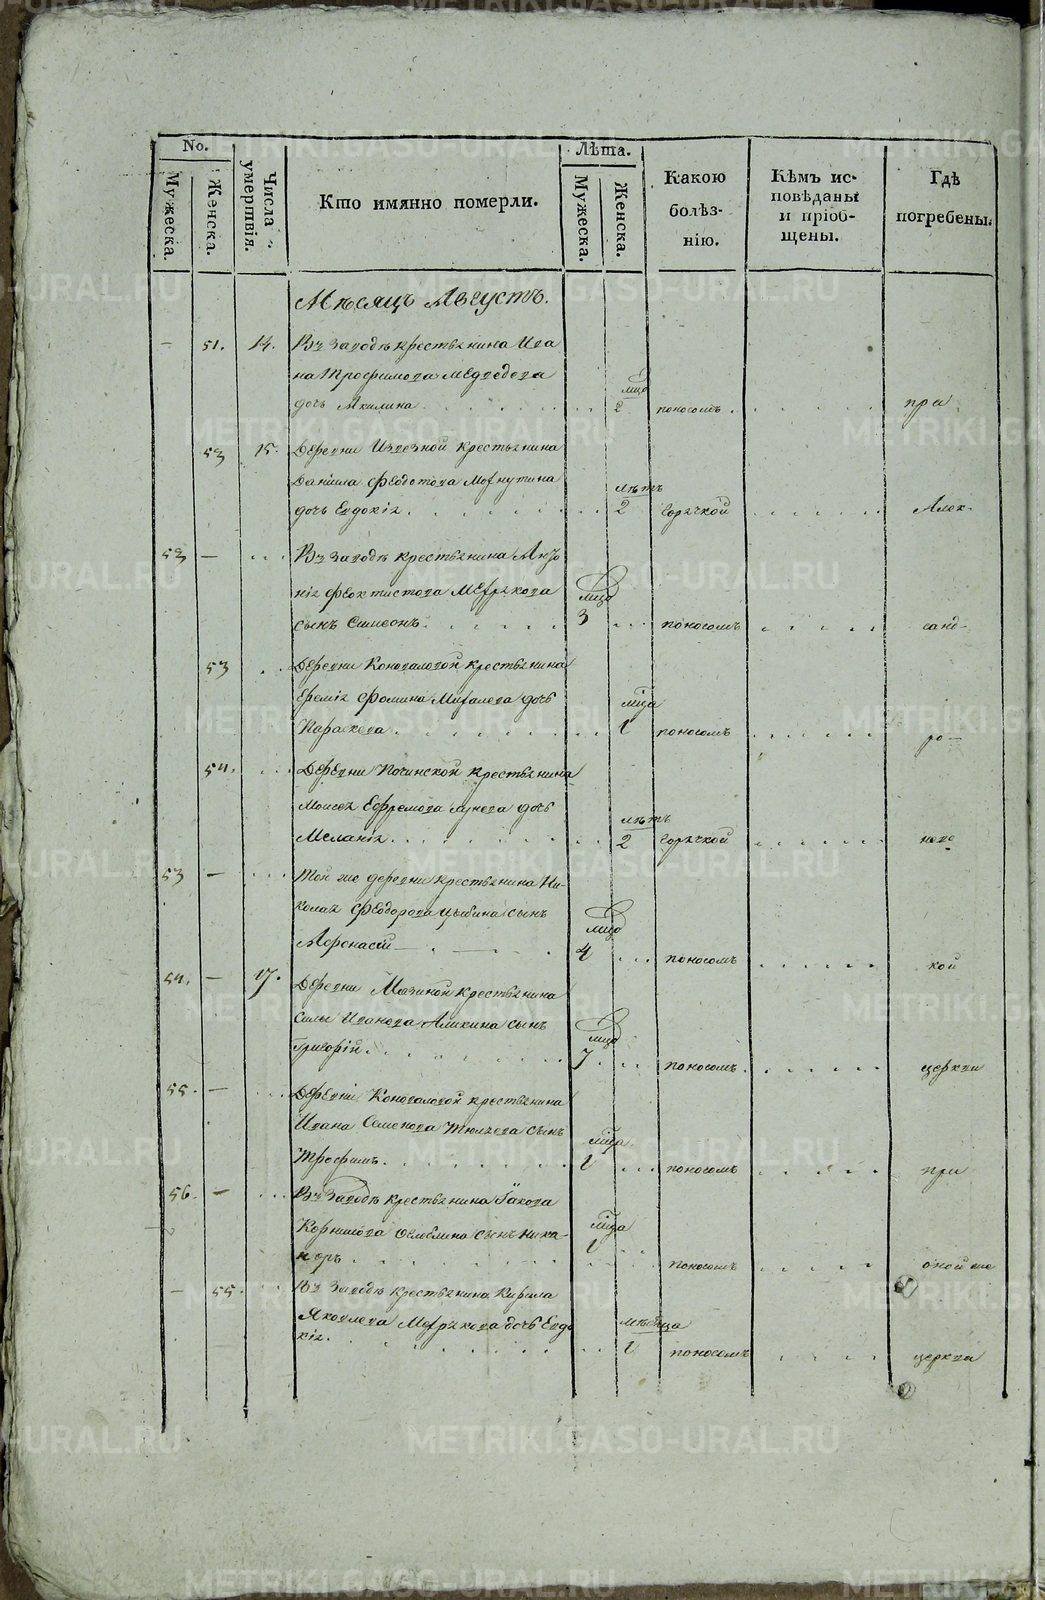 No.
Мужеска.
Женска.
Числа умертвія.
Кто имянно померли.
Лѣта.
Мужеска.
Женска.
Какою болѣз-
нію.
Кѣмъ ис-
повѣданы
и пріоб-
щены.
Гдѣ
погребены.
Мѣсяцъ Августъ.
— 51. 14. Въ Заводѣ крестьянина Ива
на Трофимова Медведева
дочь Акилина мцо 2 поносомъ при
52 15. Деревни крестьянина
Данiила Феодотова
дочь Евдокія лѣтъ 2 горячкой Алек-
52 — Въ Заводѣ крестьянина
нія Феоктистова
сынъ Симеонъ мцо 3 поносомъ санд-
53 Деревни Коноваловой крестьянина
Еремія Фомина дочь
Параскева мца 1 поносомъ ро—
54. Деревни Починской крестьянина
Моисея Ефремова дочь
Меланія лѣтъ 2 горячкой невс
53 — Той же деревни крестьянина Ни-
колая Феодорова сынъ
Афонасій мцо 4 поносомъ кой
54. — 17. Деревни крестьянина
Силы Иванова сынъ
Григорій мцо 7 поносомъ церкви
55. — Деревни Коноваловой крестьянина
Ивана Семенова сынъ
Трофимъ мца 1 поносомъ при
56. — Въ Заводѣ крестьянина Іакова
Корнилова сынъ Ника-
норъ мца 1 поносомъ оной же
— 55. Въ Заводѣ крестьянина Кирила
Яковлева дочь Евдо
кія. мѣсяца 1 поносомъ церкви
METRIKI.GASO-URAL.RU